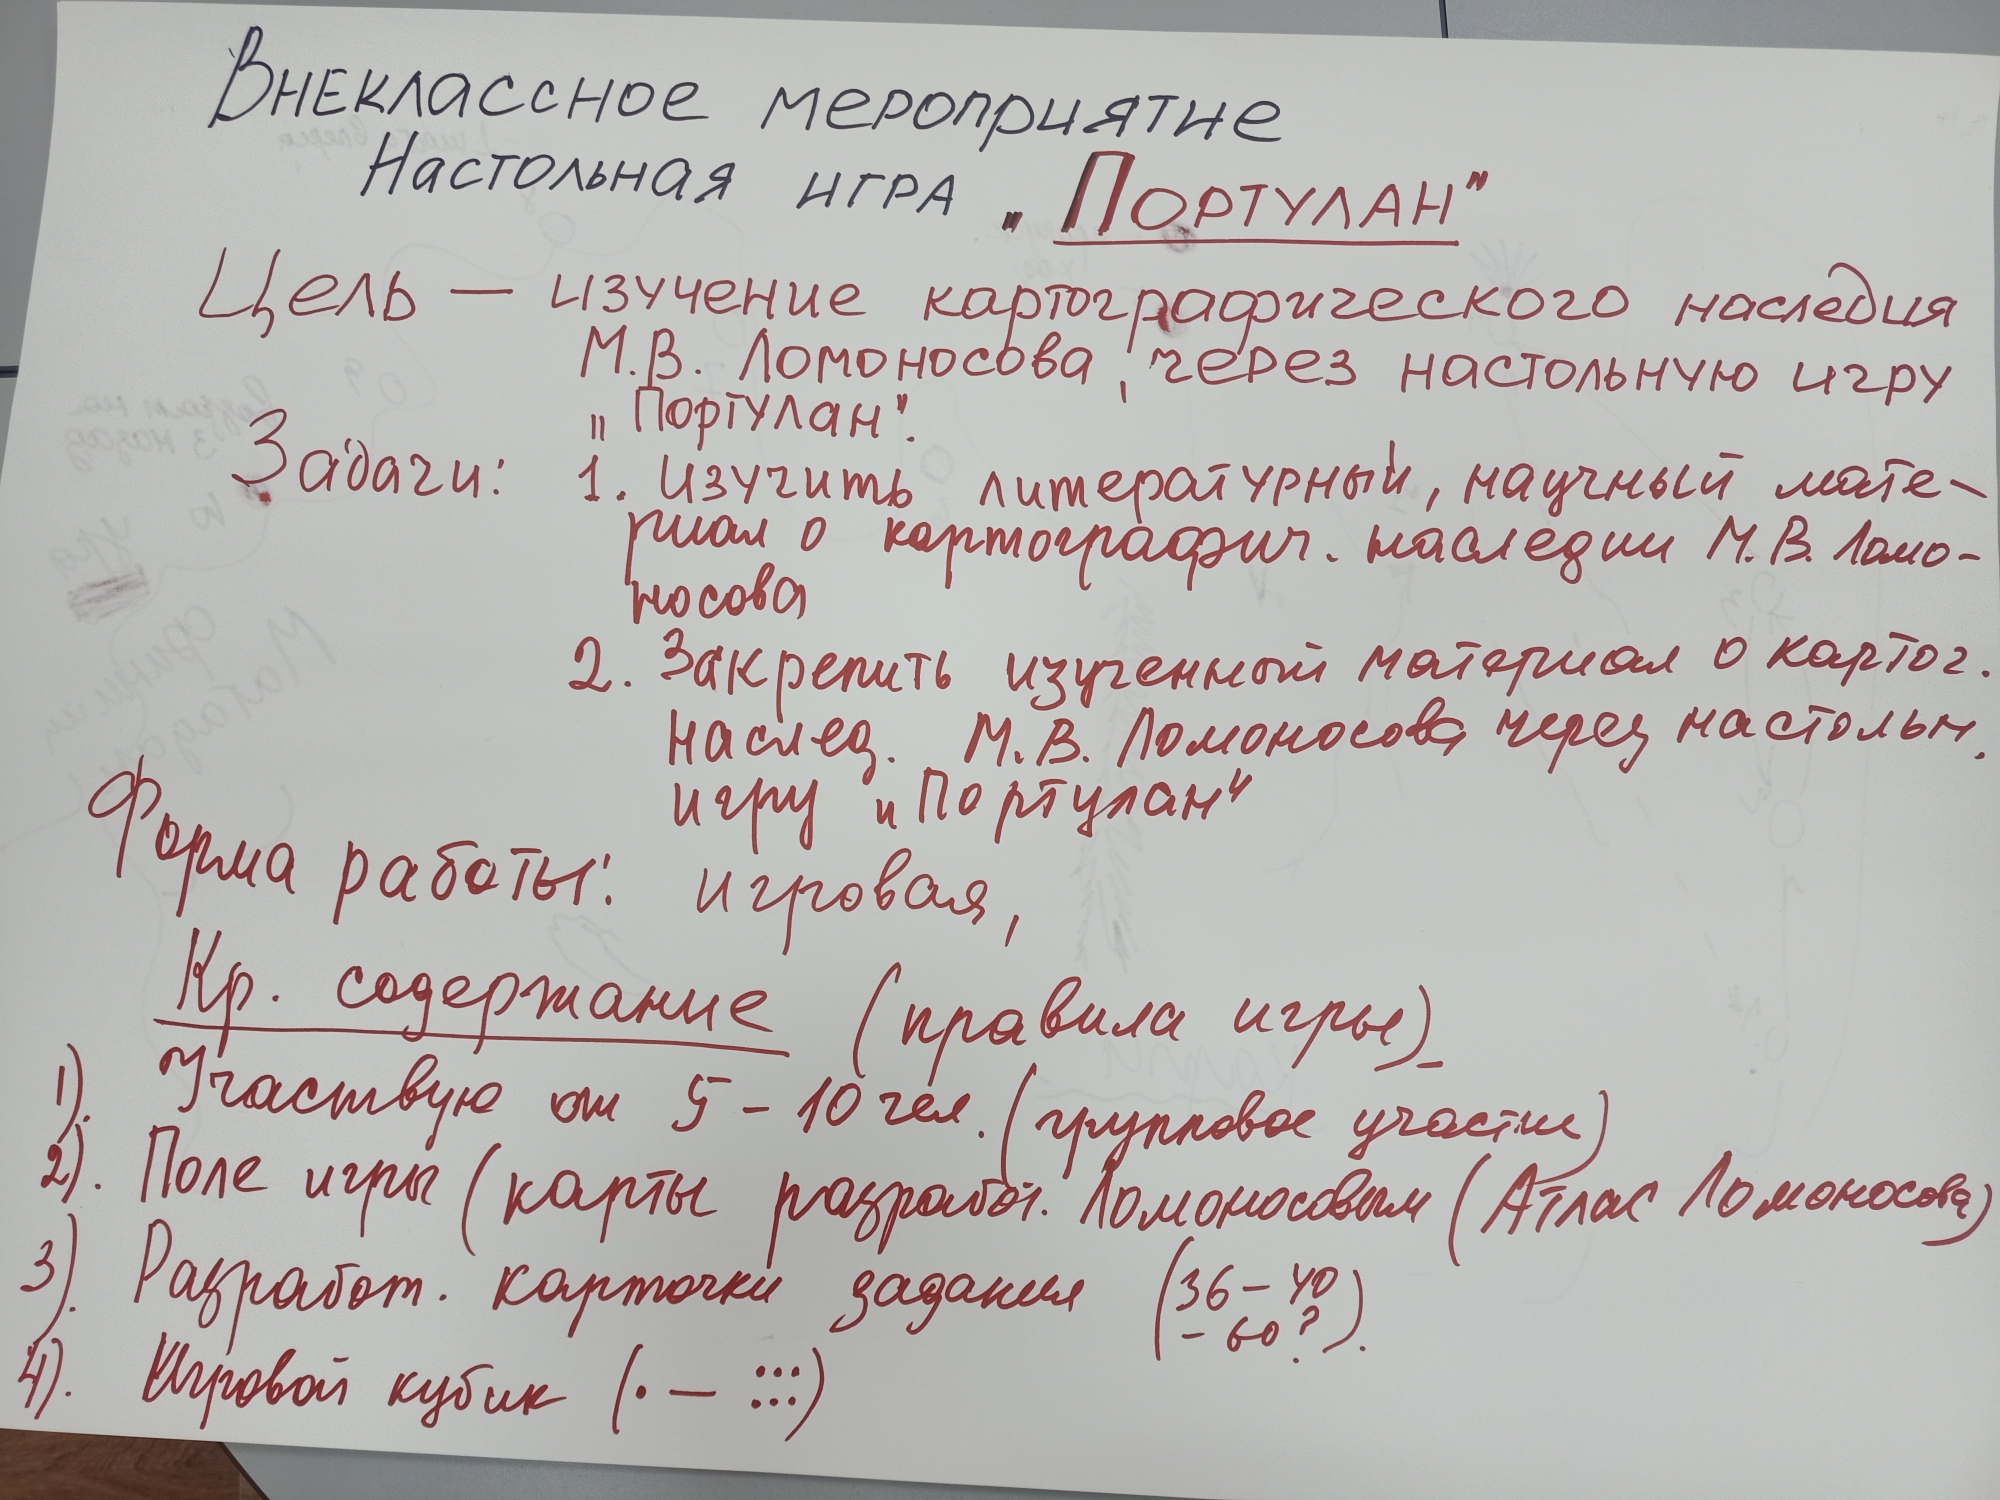 Внеклассное мероприятие
Настольная игра „Портулан"
Цель — изучение картографического наследия
М.В. Ломоносова, через настольную игру
„Портулан".
Задачи: 1. Изучить литературный, научный мате-
риал о картографич. наследии М.В. Ломо-
носова
2. Закрепить изученный материал о картог.
наслед. М.В. Ломоносова через настольн.
игру „Портулан"
Форма работы: игровая,
Кр. содержание (правила игры)
1). Участвую от 5 – 10 чел. (групповое участие)
2). Поле игры (карты разработ. Ломоносовым (Атлас Ломоносова)
3). Разработ. карточки задания (36 – 40
– 60?).
4). Игровой кубик (· — :::)